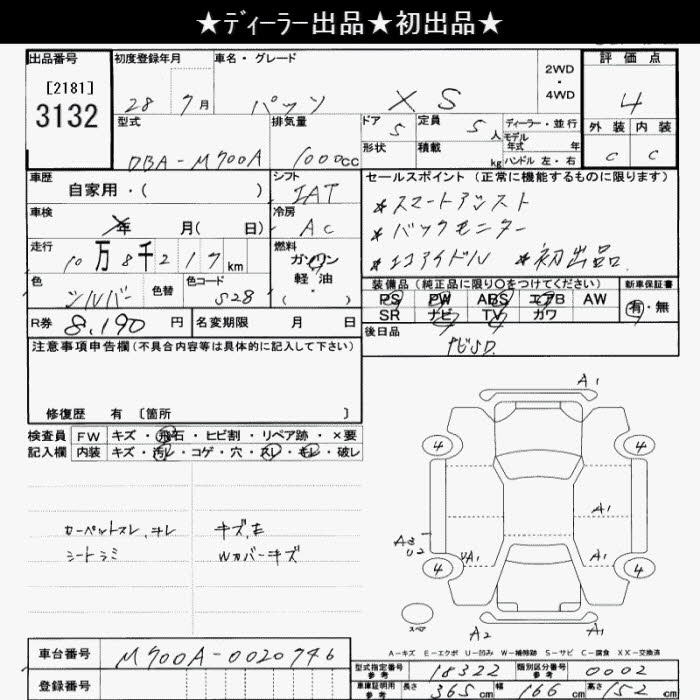 ★ディーラー出品★初出品★
出品番号 初度登録年月 車名・グレード 2WD・4WD 評価点
[2181]
3132
28 7月 パッソ XS 4
型式 排気量 ドア 5 定員 5人 ディーラー・並行 外装 内装
モデル年式 年
DBA-M700A 1000cc 形状 積載 kg ハンドル 左・右 C C
車歴 シフト セールスポイント(正常に機能するものに限ります)
自家用・( ) IAT
*スマートアシスト
車検 年 月( 日) 冷房 AC
*バックモニター
走行 10万8千217km 燃料 ガソリン
*エコアイドル *初出品
色 シルバー 色替 色コード S28 軽油・( )
装備品(純正品に限り○をつけてください) 新車保証書
PS PW ABS エアB AW 有・無
SR ナビ TV カワ
R券 8,190円 名変期限 月 日
後日品 ナビSD.
注意事項申告欄(不具合内容等は具体的に記入して下さい)
修復歴 有 [箇所 ]
検査員 FW キズ・飛石・ヒビ割・リペア跡・×要
記入欄 内装 キズ・汚レ・コゲ・穴・スレ・キレ・破レ
カーペットスレ,キレ キズ,E
シートシミ WカバーキズA1
4 4
A1
UA1 A1
4 4
スペア
A2 A1
A-キズ E-エクボ U-凹み W-補修跡 S-サビ C-腐食 XX-交換済
車台番号 M700A-0020746
登録番号
型式指定番号 参考 18322 類別区分番号 参考 0002
車庫証明用 参考 長さ 365cm 幅 166cm 高さ 152cm